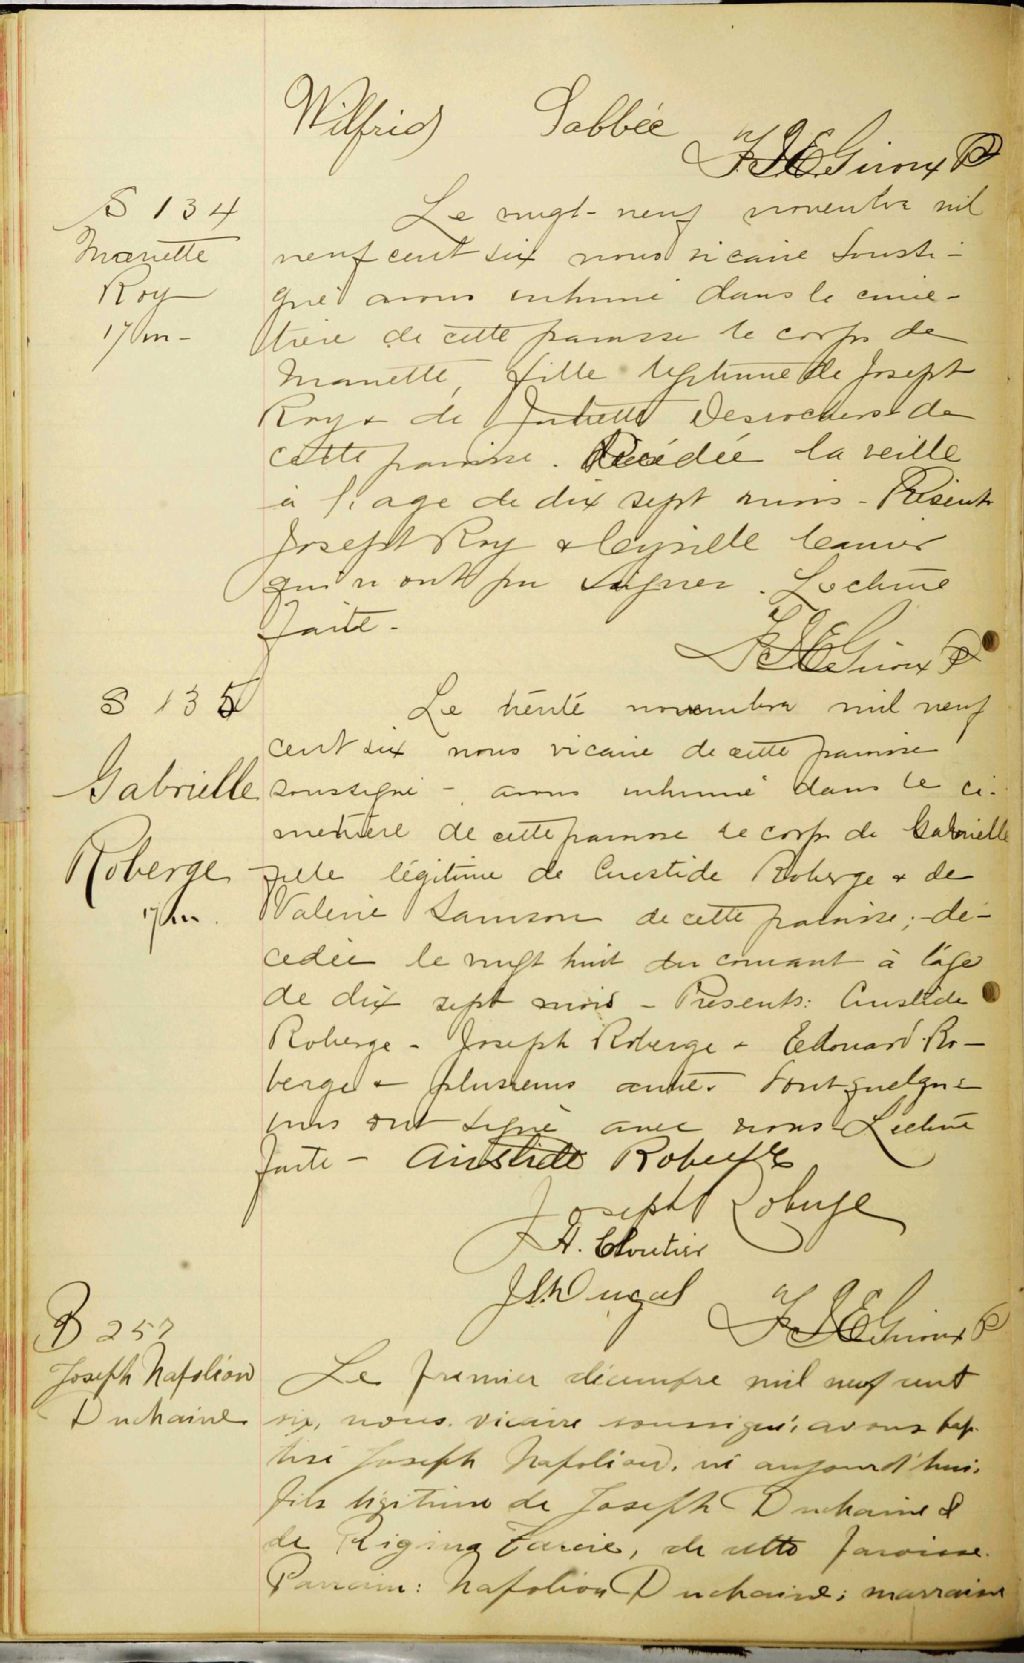 Wilfrid Labbée
F J E Giroux P
S 134
Mariette
Roy
17 m -
Le vingt-neuf novembre mil
neuf cent six nous vicaire soussi-
gné avons inhumé dans le cime-
tière de cette paroisse le corps de
Mariette, fille légitime de Joseph
Roy & de Juliette Desrochers de
cette paroisse. Décédée la veille
à l'age de dix sept mois - Présents
Joseph Roy & Cyrille
qui n'ont pu signer. Lecture
faite -
F J E Giroux P
S 135
Gabrielle
Roberge
17 m.
Le trente novembre mil neuf
cent six nous vicaire de cette paroisse
soussigné - avons inhumé dans le ci-
metière de cette paroisse le corps de Gabrielle
fille légitime de Aristide Roberge & de
Valérie Samson de cette paroisse; - dé-
cédée le vingt huit du courant à l'âge
de dix sept mois - Présents: Aristide
Roberge - Joseph Roberge - Edouard Ro-
berge & plusieurs autres dont quelques
uns ont signé avec nous - Lecture
faite - Aristide Roberge
Joseph Roberge
H. Cloutier
Dugal
F J E Giroux P
B 257
Joseph Napoléon
Duchaine
Le premier décembre mil neuf cent
six, nous, vicaire soussigné, avons bap-
tisé Joseph Napoléon, né aujourd'hui,
fils légitime de Joseph Duchaine &
de Régina, de cette paroisse.
Parrain: Napoléon Duchaine; marraine